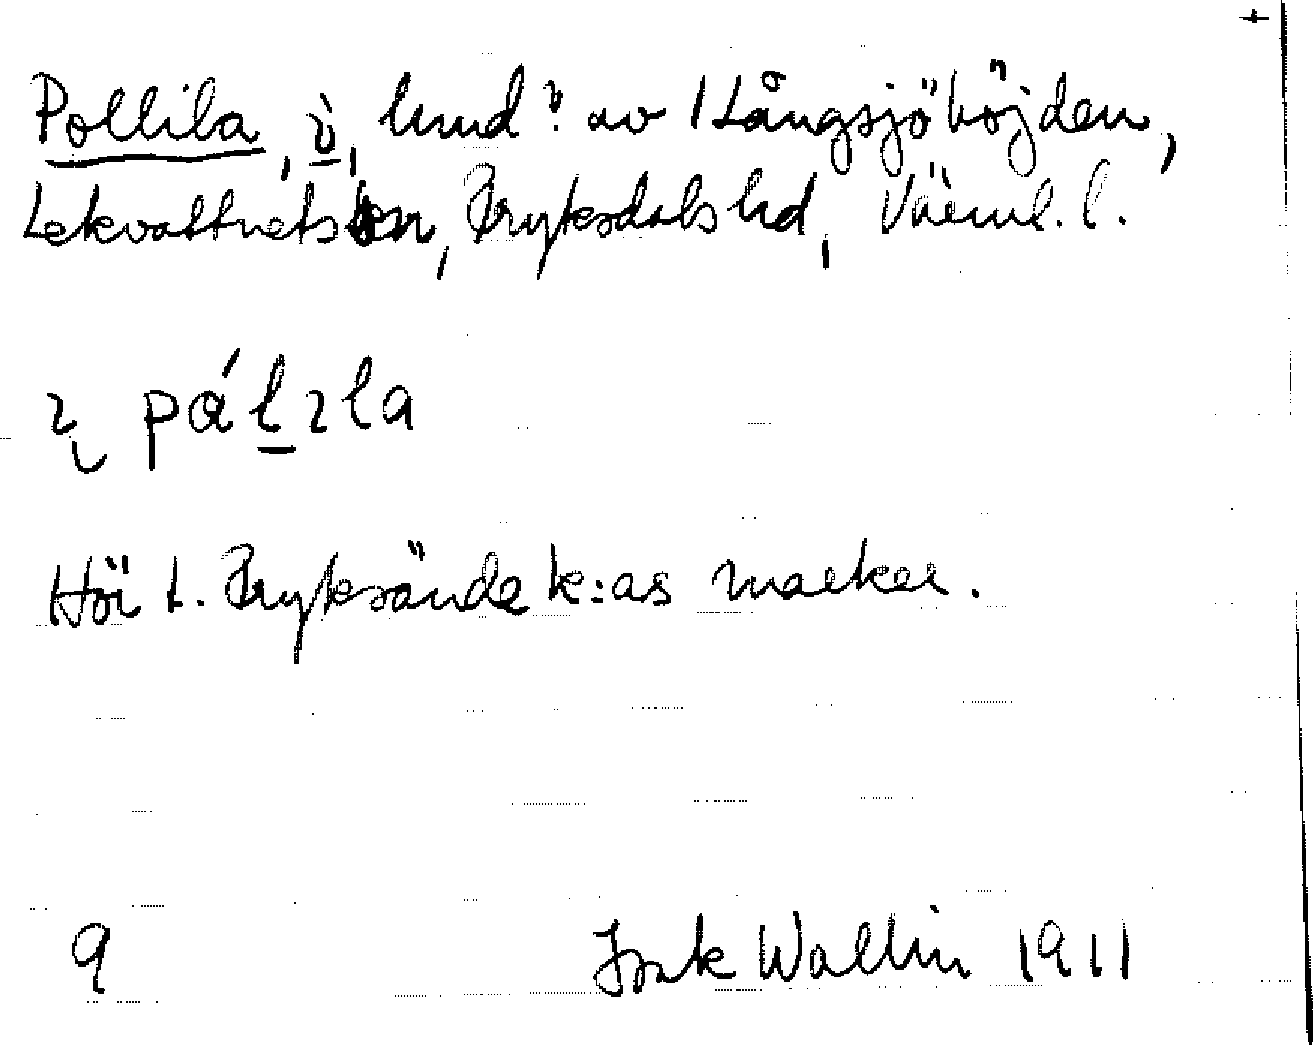 +
Pollila, i, hmd? av 1 Långsjöhöjden,
Lekvattnets sn, Fryksdals hd, Värml. l.
pálıla
Hör t. Fryksände k:as marker.
9 Isak Wallin 1911